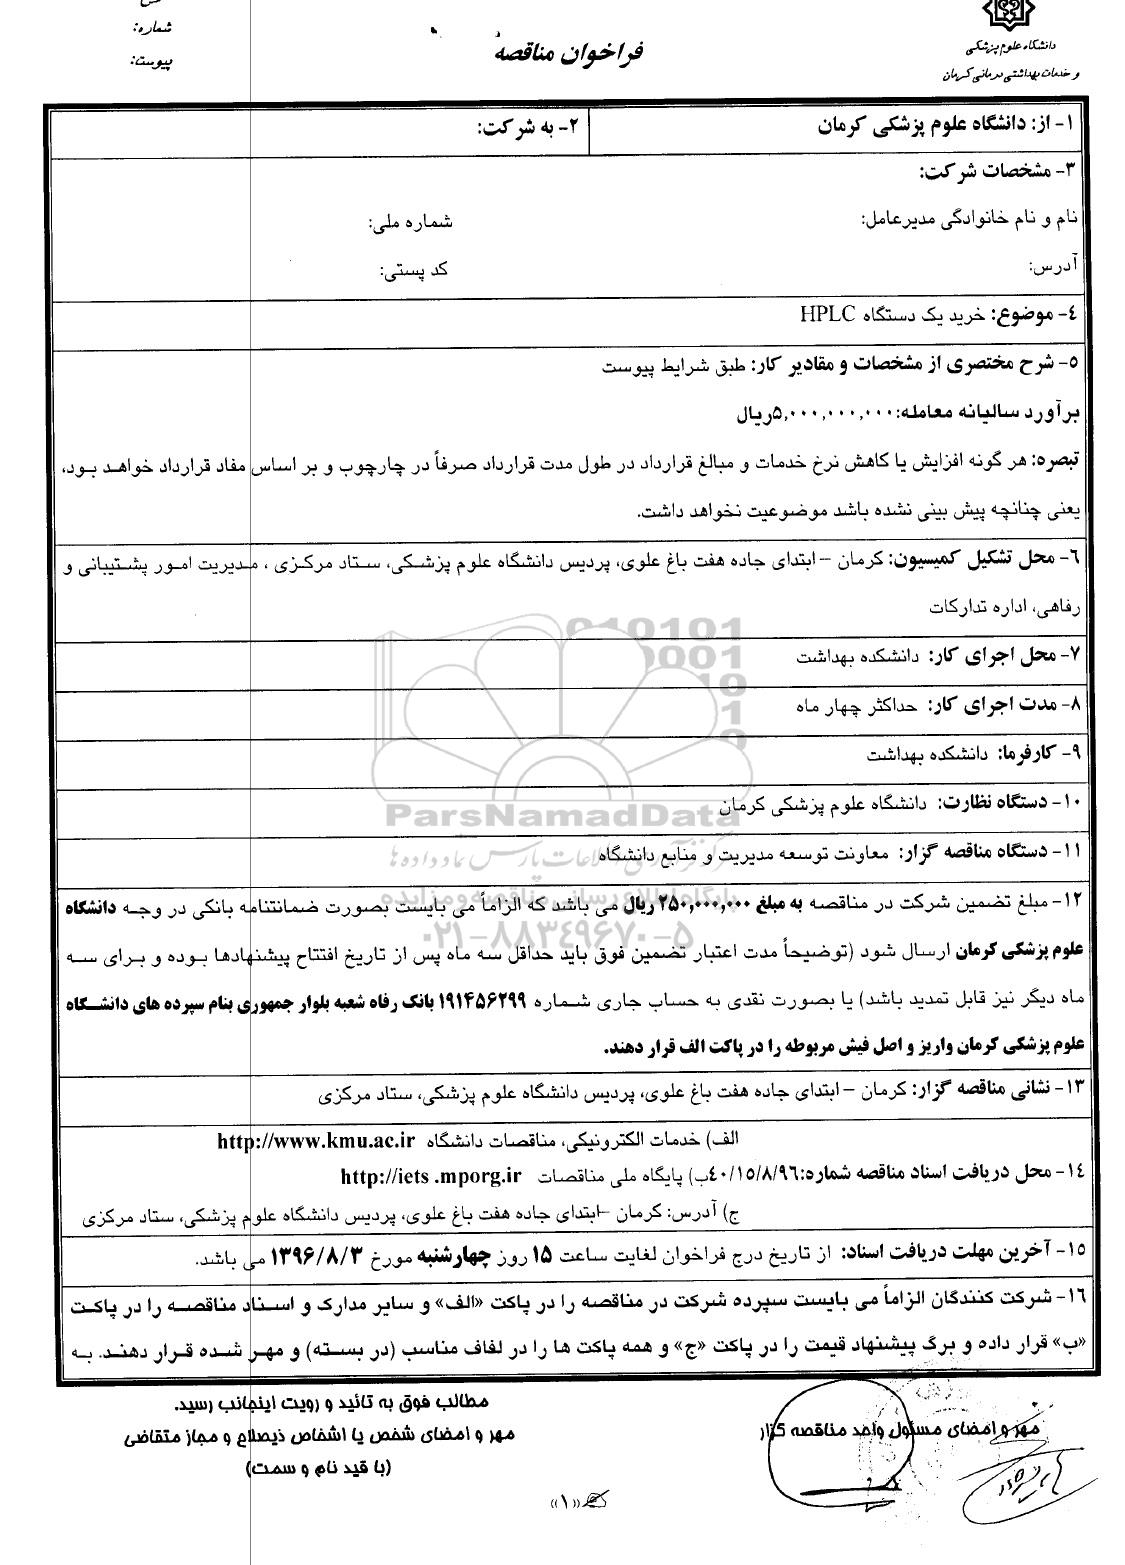 دانشگاه علوم پزشکی
و خدمات بهداشتی درمانی کرمان
فراخوان مناقصه
شماره:
پیوست:
۱- از: دانشگاه علوم پزشکی کرمان
۲- به شرکت:
۳- مشخصات شرکت:
نام و نام خانوادگی مدیرعامل: شماره ملی:
آدرس: کد پستی:
۴- موضوع: خرید یک دستگاه HPLC
۵- شرح مختصری از مشخصات و مقادیر کار: طبق شرایط پیوست
برآورد سالیانه معامله: ۵,۰۰۰,۰۰۰,۰۰۰ریال
تبصره: هر گونه افزایش یا کاهش نرخ خدمات و مبالغ قرارداد در طول مدت قرارداد صرفاً در چارچوب و بر اساس مفاد قرارداد خواهد بود،
یعنی چنانچه پیش بینی نشده باشد موضوعیت نخواهد داشت.
۶- محل تشکیل کمیسیون: کرمان – ابتدای جاده هفت باغ علوی، پردیس دانشگاه علوم پزشکی، ستاد مرکزی ، مدیریت امور پشتیبانی و
رفاهی، اداره تدارکات
۷- محل اجرای کار: دانشکده بهداشت
۸- مدت اجرای کار: حداکثر چهار ماه
۹- کارفرما: دانشکده بهداشت
۱۰- دستگاه نظارت: دانشگاه علوم پزشکی کرمان
ParsNamadData
۱۱- دستگاه مناقصه گزار: معاونت توسعه مدیریت و منابع دانشگاه
مرکز فرآوری اطلاعات پارس نماد داده ها
پایگاه اطلاع رسانی مناقصه و مزایده
۱۲- مبلغ تضمین شرکت در مناقصه به مبلغ ۲۵۰,۰۰۰,۰۰۰ ریال می باشد که الزاماً می بایست بصورت ضمانتنامه بانکی در وجه دانشگاه
۰۲۱-۸۸۳۴۹۶۷۰-۵
علوم پزشکی کرمان ارسال شود (توضیحاً مدت اعتبار تضمین فوق باید حداقل سه ماه پس از تاریخ افتتاح پیشنهادها بوده و برای سه
ماه دیگر نیز قابل تمدید باشد) یا بصورت نقدی به حساب جاری شماره ۱۹۱۴۵۶۲۹۹ بانک رفاه شعبه بلوار جمهوری بنام سپرده های دانشگاه
علوم پزشکی کرمان واریز و اصل فیش مربوطه را در پاکت الف قرار دهند.
۱۳- نشانی مناقصه گزار: کرمان – ابتدای جاده هفت باغ علوی، پردیس دانشگاه علوم پزشکی، ستاد مرکزی
الف) خدمات الکترونیکی، مناقصات دانشگاه http://www.kmu.ac.ir
۱۴- محل دریافت اسناد مناقصه شماره:۴۰/۱۵/۸/۹۶ب) پایگاه ملی مناقصات http://iets .mporg.ir
ج) آدرس: کرمان –ابتدای جاده هفت باغ علوی، پردیس دانشگاه علوم پزشکی، ستاد مرکزی
۱۵- آخرین مهلت دریافت اسناد: از تاریخ درج فراخوان لغایت ساعت ۱۵ روز چهارشنبه مورخ ۱۳۹۶/۸/۳ می باشد.
۱۶- شرکت کنندگان الزاماً می بایست سپرده شرکت در مناقصه را در پاکت «الف» و سایر مدارک و اسناد مناقصه را در پاکت
«ب» قرار داده و برگ پیشنهاد قیمت را در پاکت «ج» و همه پاکت ها را در لفاف مناسب (در بسته) و مهر شده قرار دهند. به
مهر و امضای مسئول واحد مناقصه گزار
مطالب فوق به تائید و رویت اینجانب رسید.
مهر و امضای شخص یا اشخاص ذیصلاح و مجاز متقاضی
(با قید نام و سمت)
«۱»